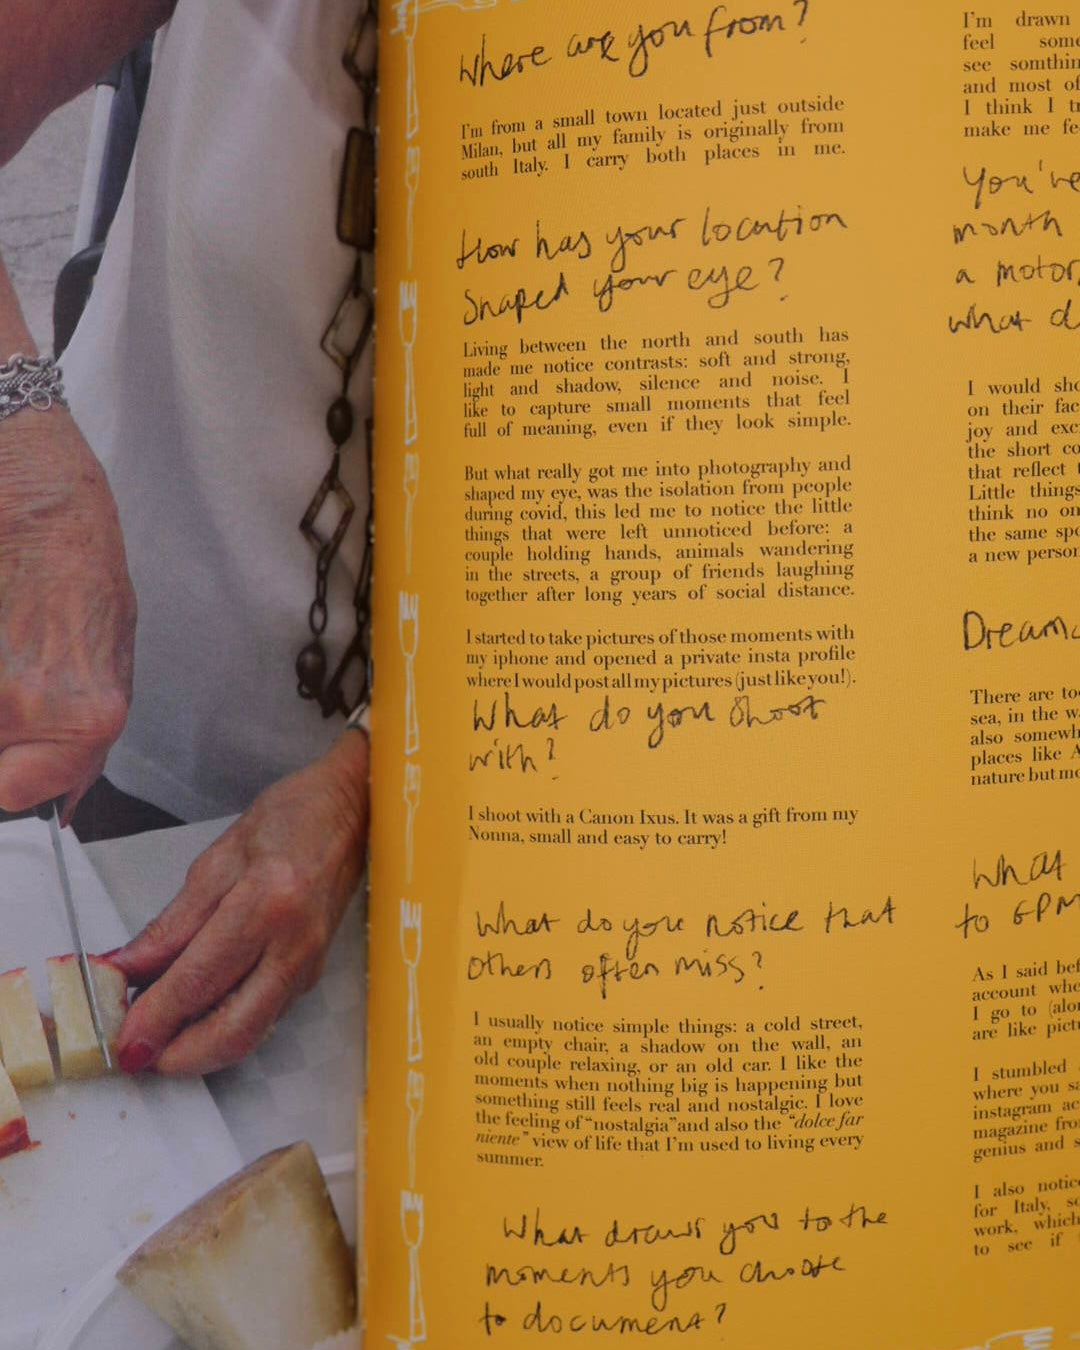 Where are you from?
I'm from a small town located just outside
Milan, but all my family is originally from
south Italy. I carry both places in me.
How has your location
Shaped your eye?
Living between the north and south has
made me notice contrasts: soft and strong,
light and shadow, silence and noise. I
like to capture small moments that feel
full of meaning, even if they look simple.
But what really got me into photography and
shaped my eye, was the isolation from people
during covid, this led me to notice the little
things that were left unnoticed before: a
couple holding hands, animals wandering
in the streets, a group of friends laughing
together after long years of social distance.
I started to take pictures of those moments with
my iphone and opened a private insta profile
where I would post all my pictures (just like you!).
What do you shoot
with?
I shoot with a Canon Ixus. It was a gift from my
Nonna, small and easy to carry!
What do you notice that
others often miss?
I usually notice simple things: a cold street,
an empty chair, a shadow on the wall, an
old couple relaxing, or an old car. I like the
moments when nothing big is happening but
something still feels real and nostalgic. I love
the feeling of "nostalgia" and also the "dolce far
niente" view of life that I'm used to living every
summer.
What draws you to the
moments you choose
to document?
I'm drawn
feel
see somthin
and most of
I think I
make me
You've
month
a
what
I would
on their
joy and
the short
that reflect
Little things
think no
the same
a new person
There are
sea, in the
also
places like
nature but
What
to 6PM
As I said
account
I go to
are like
I stumbled
where you
instagram
magazine
genius and
I also
for Italy,
work, which
to see if